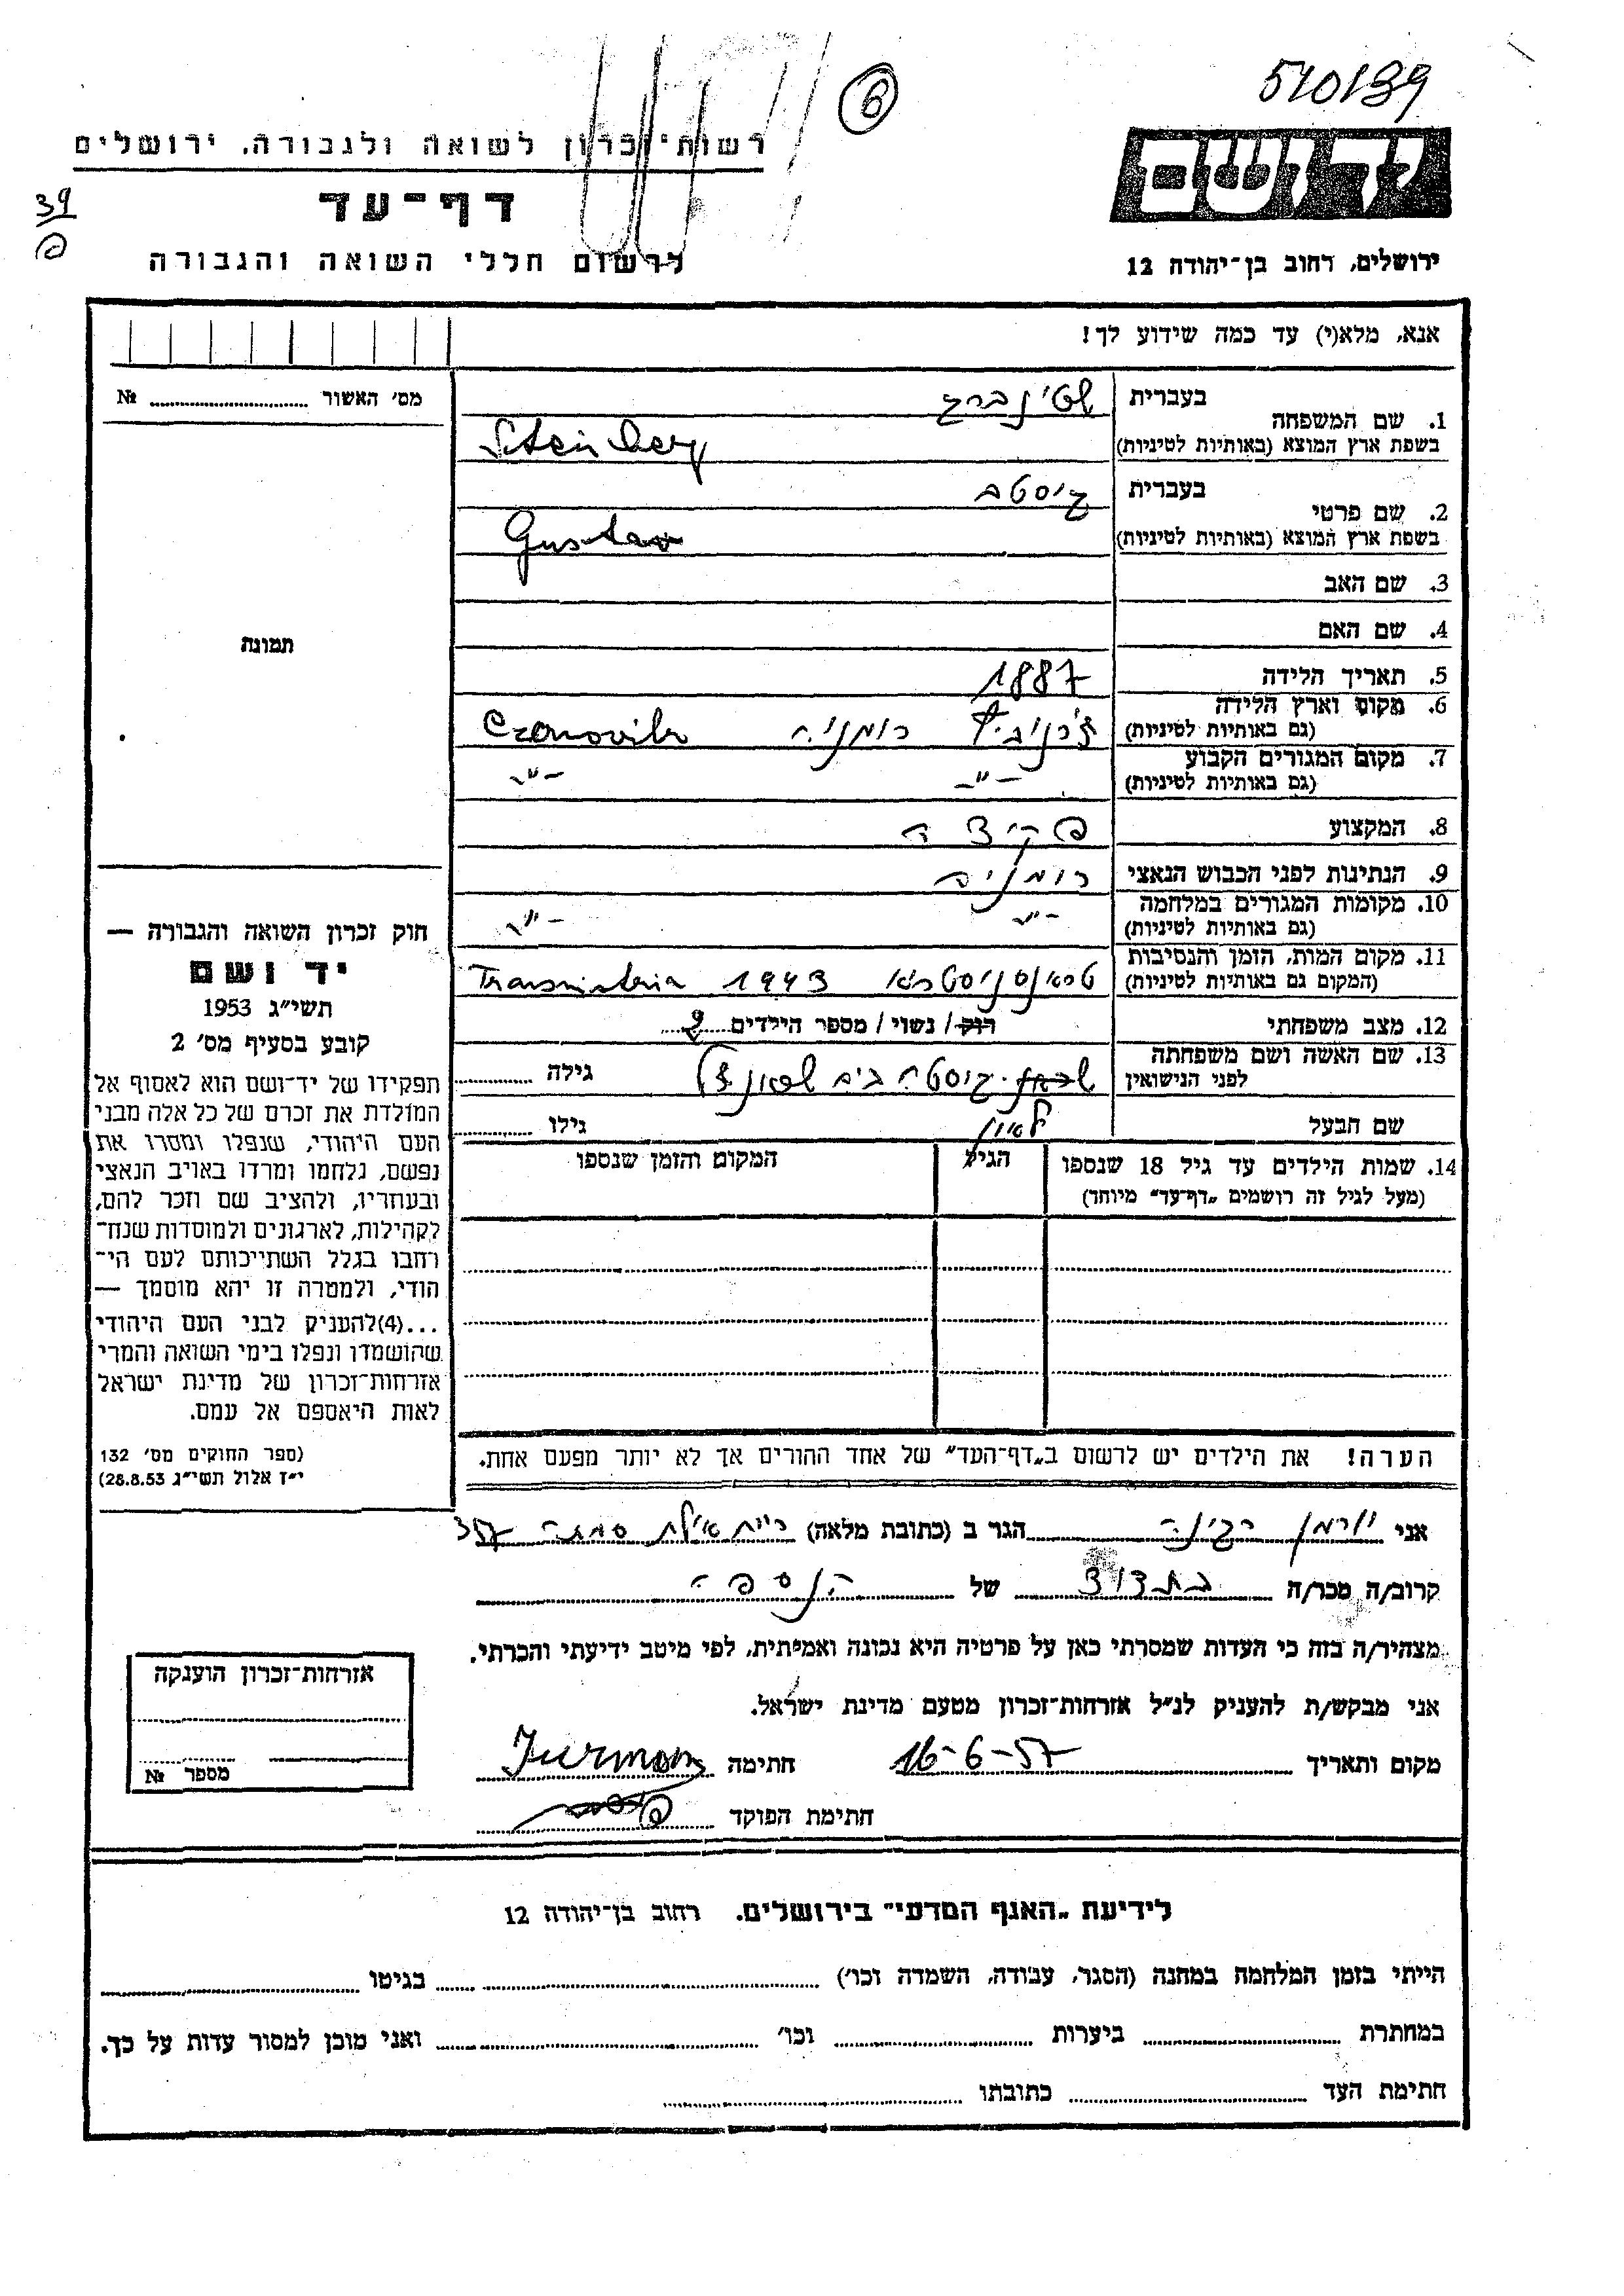 540139
6
רשות־זכרון לשואה ולגבורה, ירושלים
יד ושם
39
דף־עד
לרשום חללי השואה והגבורה
ירושלים, רחוב בן־יהודה 12
אנא, מלא(י) עד כמה שידוע לך!
מס׳ האשור № ........
1. שם המשפחה בעברית שטינברג
בשפת ארץ המוצא (באותיות לטיניות) Steinberg
2. שם פרטי בעברית גוסטב
בשפת ארץ המוצא (באותיות לטיניות) Gustav
3. שם האב
4. שם האם
תמונה
5. תאריך הלידה 1887
6. מקום וארץ הלידה (גם באותיות לטיניות) רומניה
7. מקום המגורים הקבוע (גם באותיות לטיניות) -״- -״-
8. המקצוע
9. הנתינות לפני הכבוש הנאצי
10. מקומות המגורים במלחמה (גם באותיות לטיניות) -״- -״-
11. מקום המות, הזמן והנסיבות (המקום גם באותיות לטיניות) 1943
12. מצב משפחתי רווק / נשוי / מספר הילדים 2
13. שם האשה ושם משפחתה לפני הנישואין גילה ........
שם הבעל גילו ........
14. שמות הילדים עד גיל 18 שנספו (מעל לגיל זה רושמים „דף־עד״ מיוחד) הגיל המקום והזמן שנספו
חוק זכרון השואה והגבורה —
יד ושם
תשי״ג 1953
קובע בסעיף מס׳ 2
תפקידו של יד־ושם הוא לאסוף אל
המולדת את זכרם של כל אלה מבני
העם היהודי, שנפלו ומסרו את
נפשם, נלחמו ומרדו באויב הנאצי
ובעוזריו, ולהציב שם וזכר להם,
לקהילות, לארגונים ולמוסדות שנח־
רבו בגלל השתייכותם לעם הי־
הודי, ולמטרה זו יהא מוסמך —
...(4)להעניק לבני העם היהודי
שהושמדו ונפלו בימי השואה והמרי
אזרחות־זכרון של מדינת ישראל
לאות היאספם אל עמם.
(ספר החוקים מס׳ 132
י״ז אלול תשי״ג 28.8.53)
הערה! את הילדים יש לרשום ב„דף־העד״ של אחד ההורים אך לא יותר מפעם אחת.
אני יורמן הגר ב (כתובת מלאה) 357
קרוב/ה מכר/ה של
מצהיר/ה בזה כי העדות שמסרתי כאן על פרטיה היא נכונה ואמיתית, לפי מיטב ידיעתי והכרתי.
אני מבקש/ת להעניק לנ״ל אזרחות־זכרון מטעם מדינת ישראל.
מקום ותאריך 16-6-57 חתימה Jurman
חתימת הפוקד
אזרחות־זכרון הוענקה
מספר №
לידיעת „האגף המדעי״ בירושלים, רחוב בן־יהודה 12
הייתי בזמן המלחמה במחנה (הסגר, עבודה, השמדה וכו׳) ........ בגיטו ........
במחתרת ........ ביערות ........ וכו׳ ........ ואני מוכן למסור עדות על כך.
חתימת העד ........ כתובתו ........